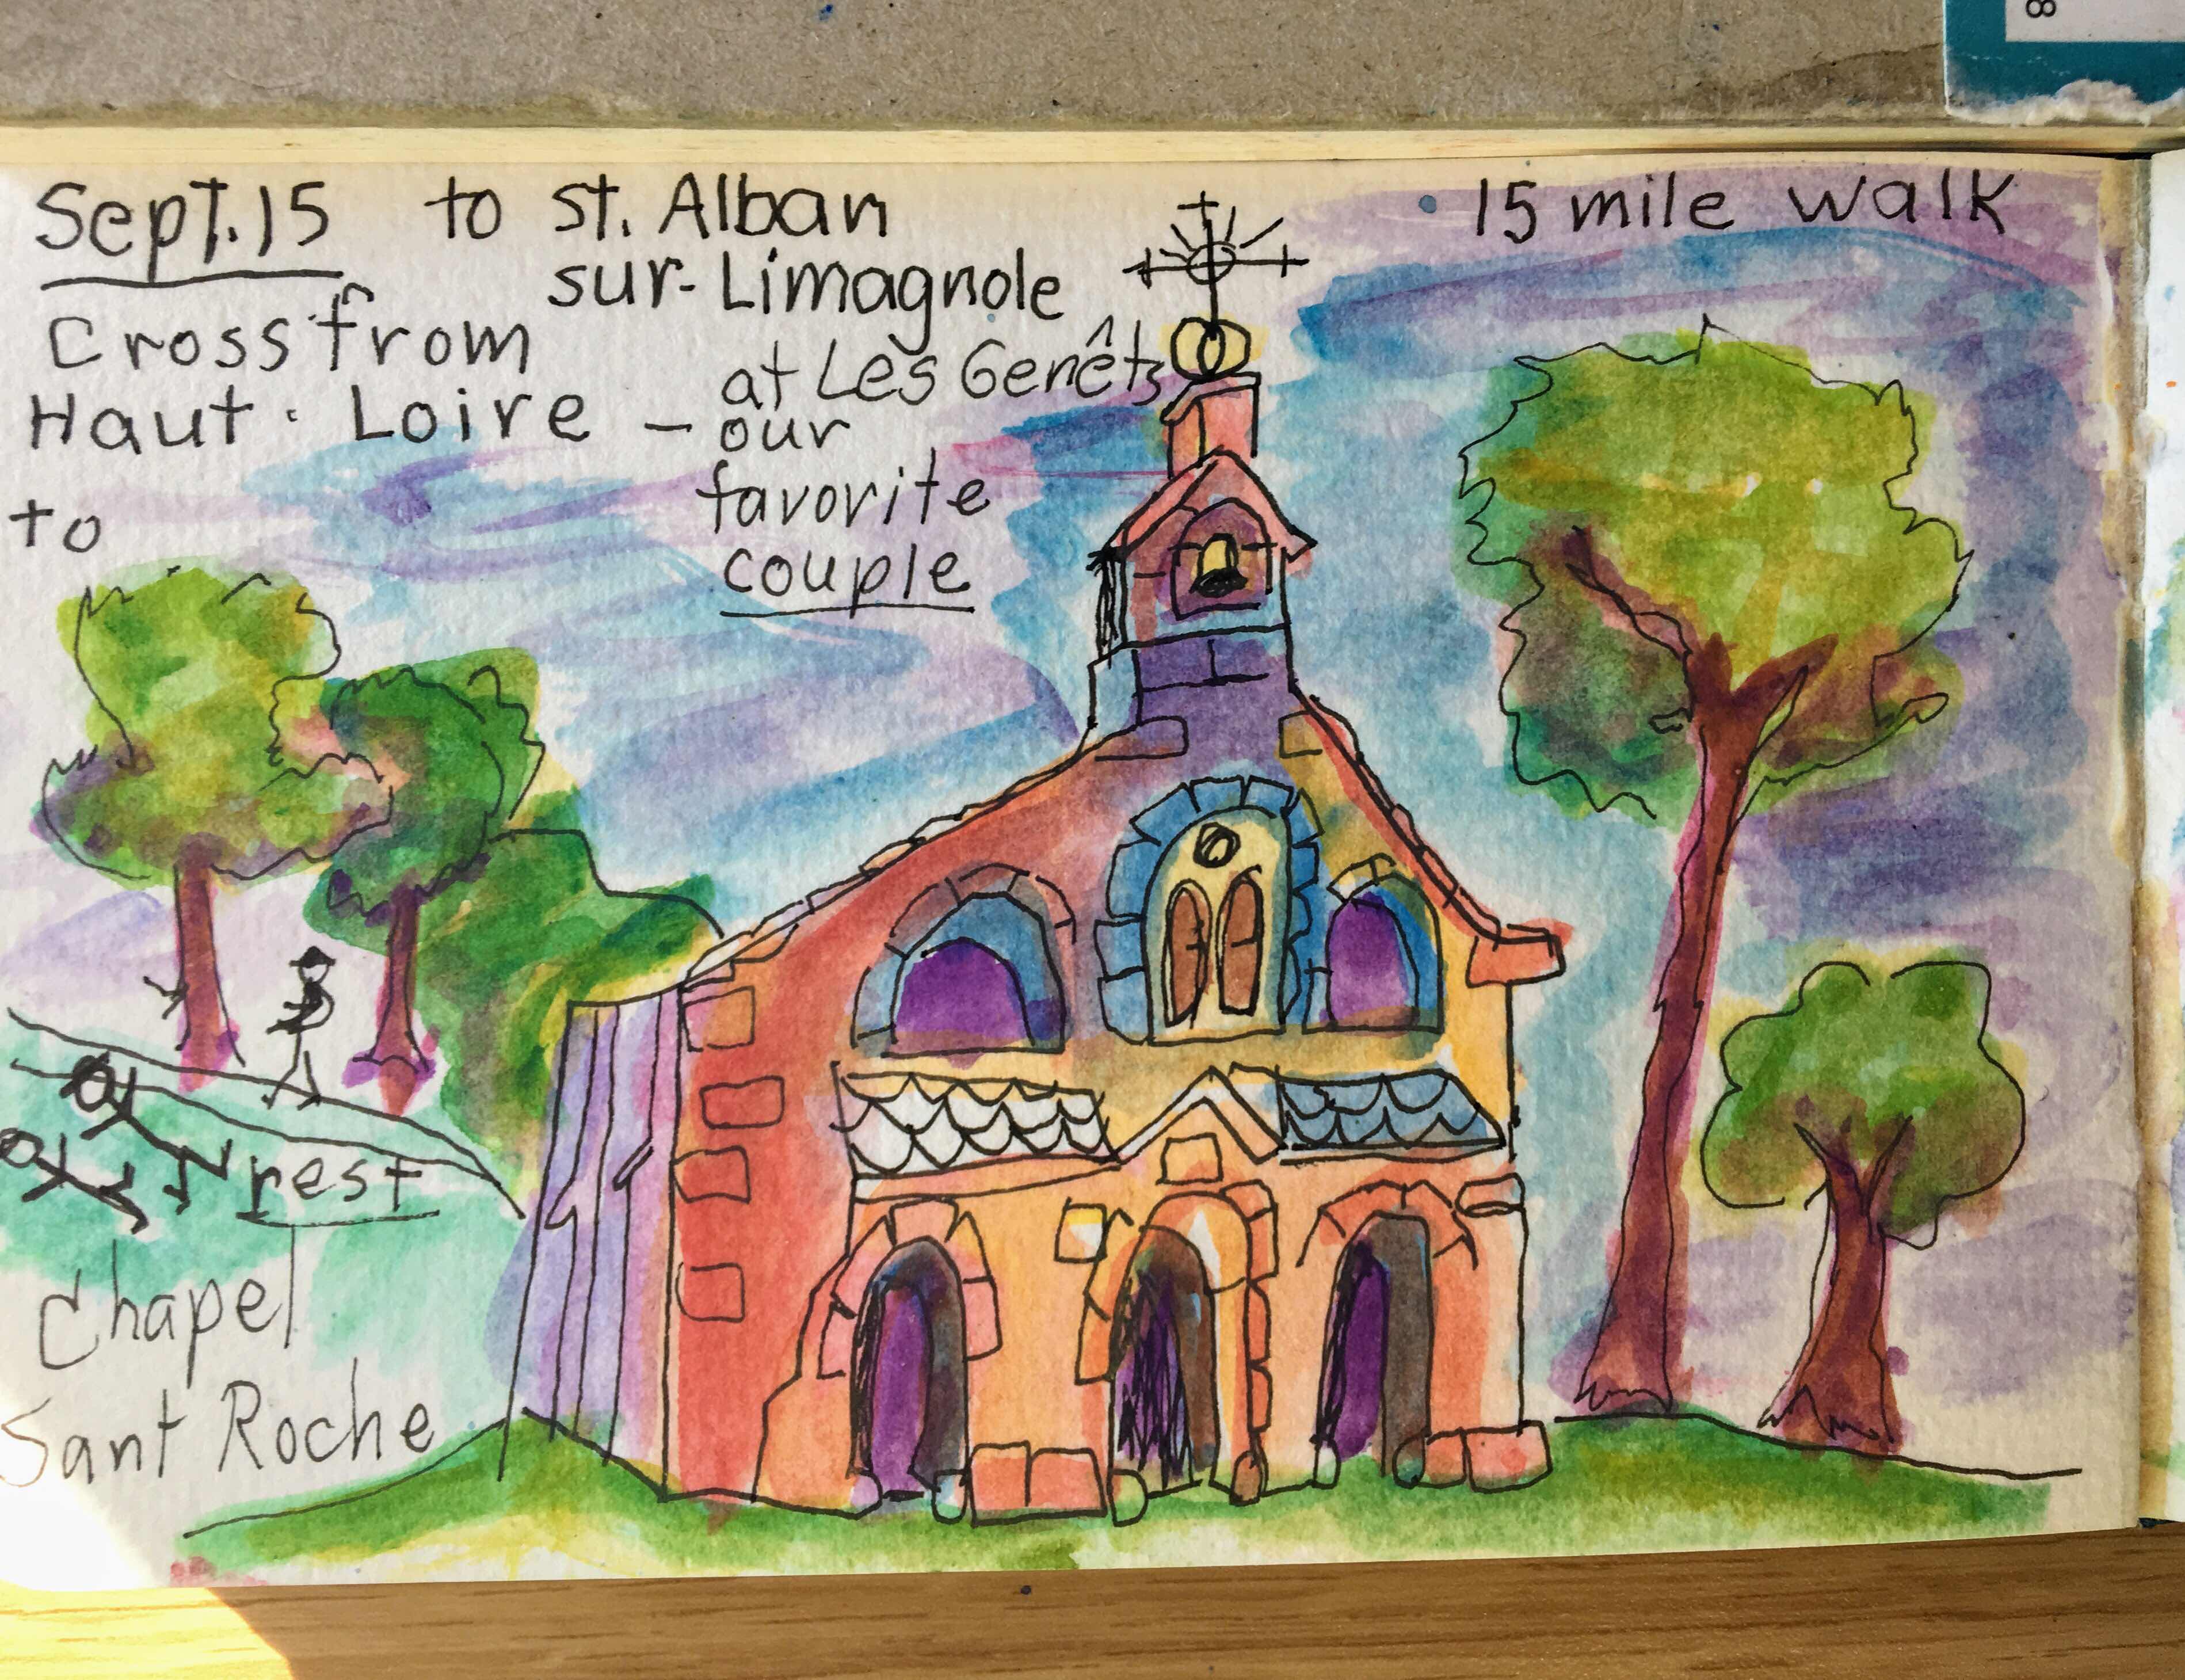 Sept. 15 to St. Alban
sur-Limagnole
• 15 mile walk
Cross from
Haut · Loire –
to
at Les Genêts
our
favorite
couple
rest
Chapel
Sant Roche
8